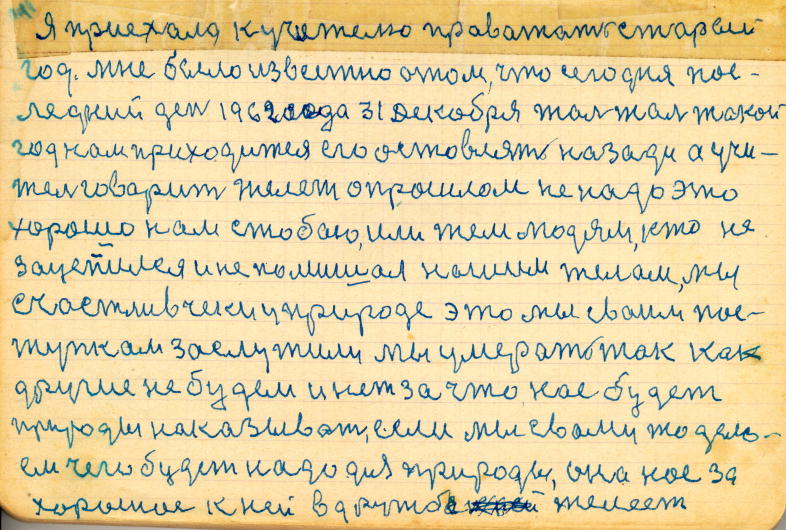 Я приехала к учителю праватать старый
год. мне было известно о том, что сегодня пос-
ледний ден 1962 года 31 декобря жал жал такой
год нам приходится его остовлять назади а учи-
тел говарит желет о прошлом не надо это
хорошо нам с тобаю, или тем людям, кто не
зацепился и не помишал нашым телам, мы
счастливчеки у природе это мы своим пос-
тупкам заслужили мы умерать так как
другие не будем и нет за что нас будет
природы наказыват, если мы своими то дело-
ем чего будет надо для природы, она нас за
хорошое к ней в дружбе желеет